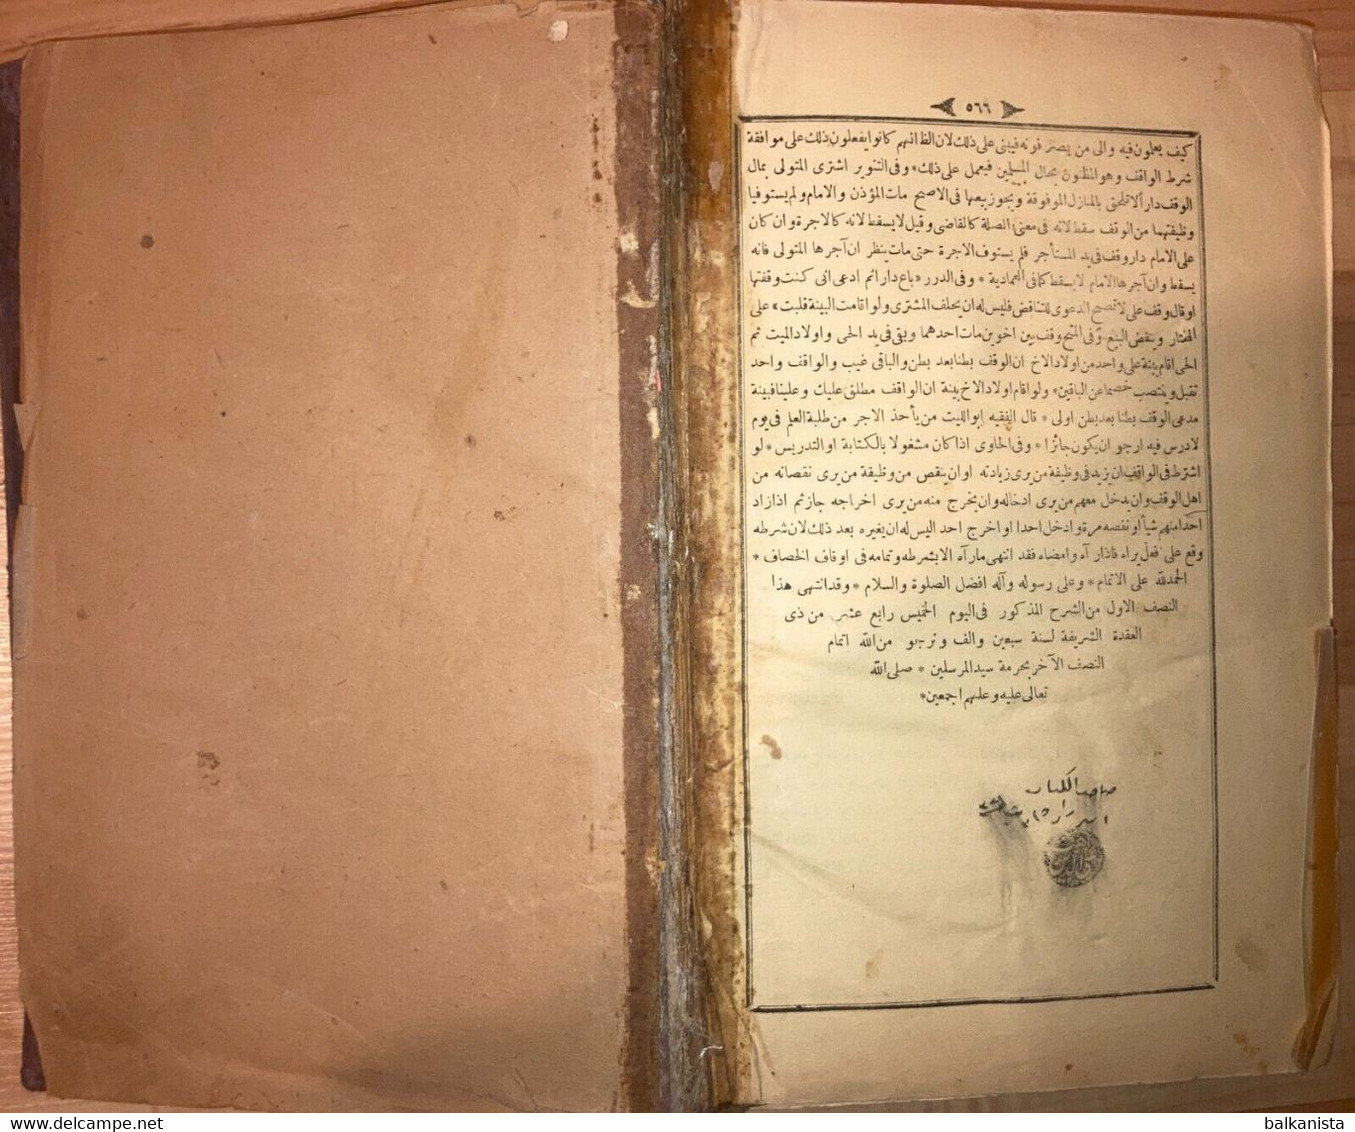 ٥٦٦
كيف يعملون فيه والى من يصرفونه فيبنى على ذلك لان الظ انهم كانوا يفعلون ذلك على موافقة
شرط الواقف وهو المظنون بحال المسلمين فيعمل على ذلك * وفى التنوير اشترى المتولى بمال
الوقف دارا لاتلحق بالمنازل الموقوفة ويجوز بيعها فى الاصح مات المؤذن والامام ولم يستوفيا
وظيفتهما من الوقف سقط لانه فى معنى الصلة كالقاضى وقيل لا يسقط لانه كالاجرة وان كان
على الامام دار وقف فى يد المستأجر فلم يستوف الاجرة حتى مات ينظر ان آجرها المتولى فانه
يسقط وان آجرها الامام لا يسقط كما فى العمادية * وفى الدرر * باع دارا ثم ادعى انى كنت وقفتها
او قال وقف على لا تصح الدعوى للتناقض فليس له ان يحلف المشترى ولو اقامت البينة قبلت * على
المختار وينقض البيع وفى المنح وقف بين اخوين مات احدهما وبقى فى يد الحى واولاد الميت ثم
الحى اقام بينة على واحد من اولاد الاخ ان الوقف بطنا بعد بطن والباقى غيب والواقف واحد
تقبل وينتصب خصما عن الباقين * ولو اقام اولاد الاخ بينة ان الواقف مطلق عليك وعلينا فبينة
مدعى الوقف بطنا بعد بطن اولى * قال الفقيه ابو الليث من يأخذ الاجر من طلبة العلم فى يوم
لا درس فيه ارجو ان يكون جائزا * وفى الحاوى اذا كان مشغولا بالكتابة او التدريس * لو
اشترط فى الواقف ان يزيد فى وظيفة من يرى زيادته او ان ينقص من وظيفة من يرى نقصانه من
اهل الوقف وان يدخل معهم من يرى ادخاله وان يخرج منه من يرى اخراجه جاز ثم اذا زاد
احدا منهم شيأ او نقصه مرة وادخل احدا او اخرج احدا ليس له ان يغيره بعد ذلك لان شرطه
وقع على فعل يراه فاذا رآه وامضاه فقد انتهى ما رآه الا بشرطه وتمامه فى اوقاف الخصاف *
الحمد لله على الاتمام * وعلى رسوله وآله افضل الصلوة والسلام * وقد انتهى هذا
النصف الاول من الشرح المذكور فى اليوم الخميس رابع عشر من ذى
العقدة الشريفة لسنة سبعين والف ونرجو من الله اتمام
النصف الآخر بحرمة سيد المرسلين * صلى الله
تعالى عليه وعليهم اجمعين *
balkanista
delcampe.net